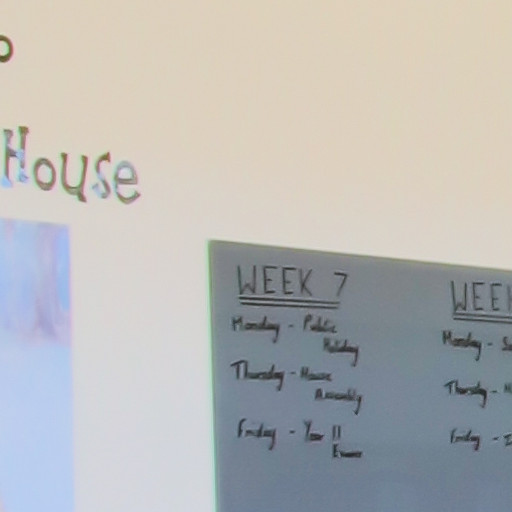 House
WEEK 7
Monday - Public
Holiday
Thursday - House
Assembly
Friday - Year 11
Exams
WEEK
Monday -
Thursday -
Friday -